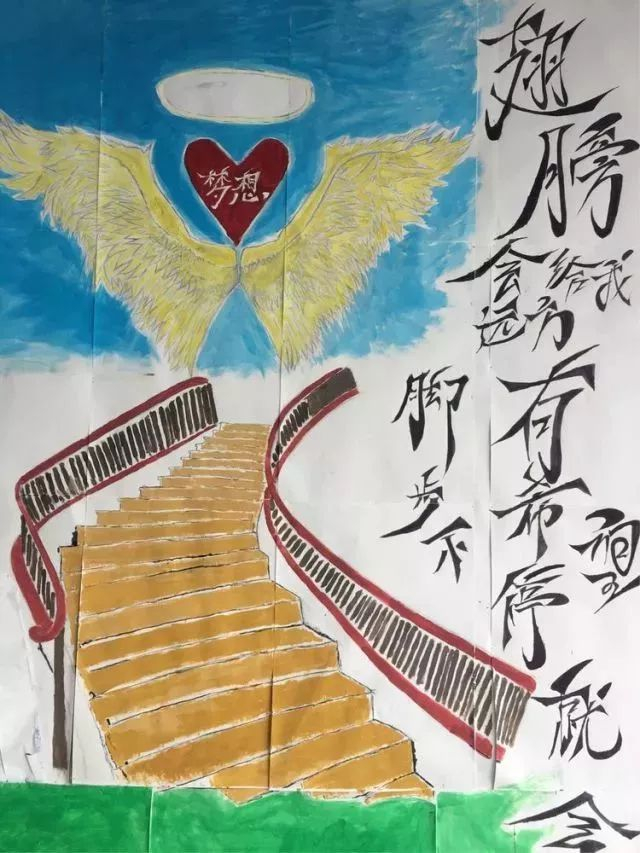 梦想
翅膀
会给我
远方
脚步不
停就会
有希望